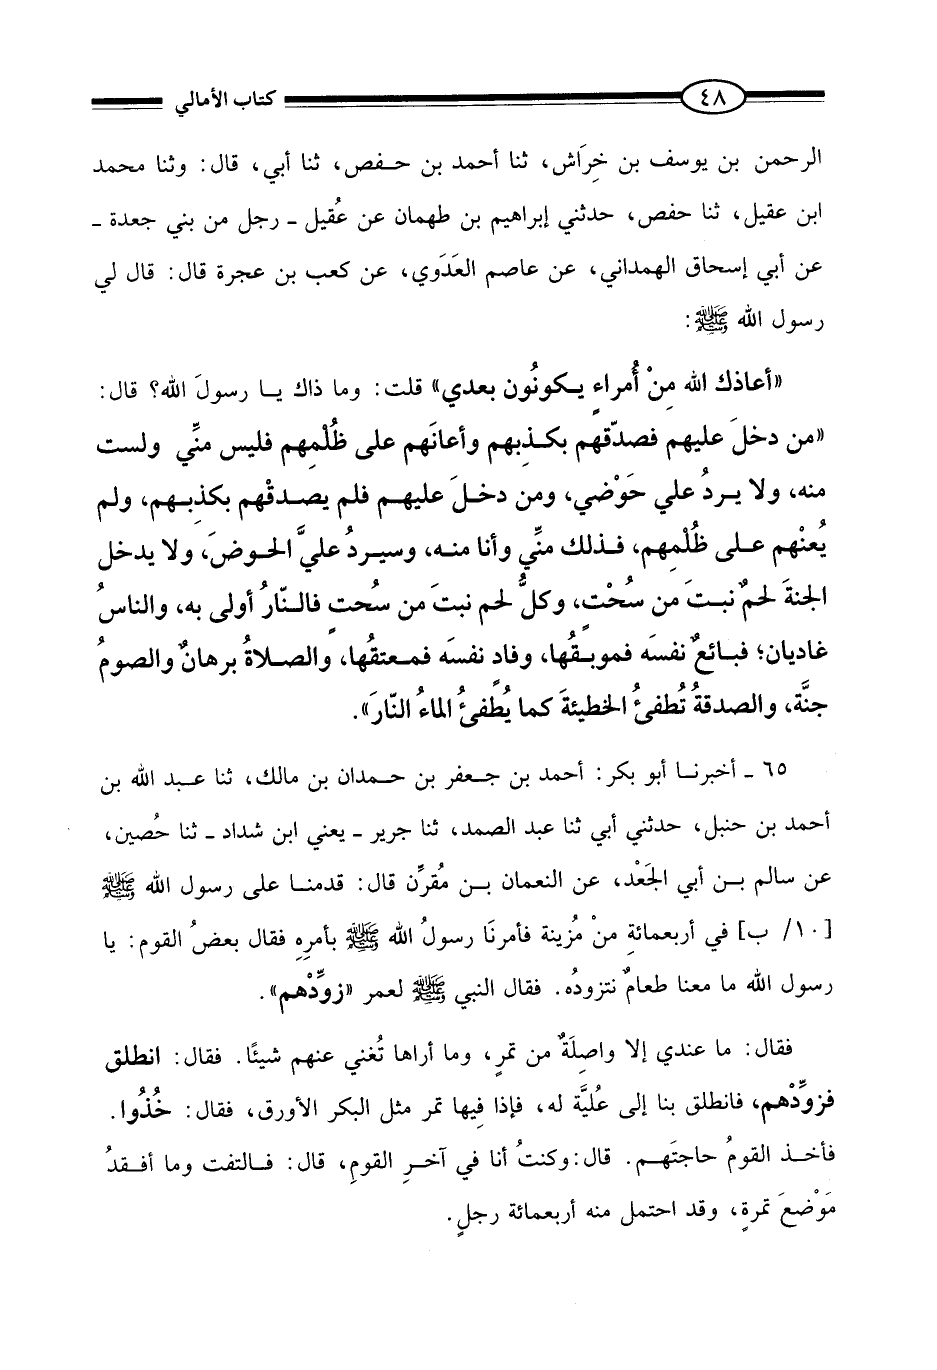 ٤٨ كتاب الأمالي
الرحمن بن يوسف بن خِرَاش، ثنا أحمد بن حفص، ثنا أبي، قال: وثنا محمد
ابن عقيل، ثنا حفص، حدثني إبراهيم بن طهمان عن عُقيل ـ رجل من بني جعدة ـ
عن أبي إسحاق الهمداني، عن عاصم العَدَوي، عن كعب بن عجرة قال: قال لي
رسول الله ﷺ:
«أعاذك الله مِنْ أُمراءٍ يكونُون بعدي» قلت: وما ذاك يا رسولَ الله؟ قال:
«من دخلَ عليهم فصدّقهم بكذبِهم وأعانَهم على ظُلْمِهم فليس منِّي ولست
منه، ولا يردُ علي حَوْضي، ومن دخلَ عليهم فلم يصدقْهم بكذبِهم، ولم
يُعنْهم على ظُلْمِهم، فذلك منِّي وأنا منه، وسيردُ عليَّ الحوضَ، ولا يدخل
الجنةَ لحمٌ نبتَ من سُحْتٍ، وكلُّ لحم نبتَ من سُحتٍ فالنّارُ أولى به، والناسُ
غاديان؛ فبائعٌ نفسَه فموبقُها، وفادٍ نفسَه فمعتقُها، والصلاةُ برهانٌ والصومُ
جنَّة، والصدقةُ تُطفئُ الخطيئةَ كما يُطْفئُ الماءُ النّارَ».
٦٥ ـ أخبرنا أبو بكر: أحمد بن جعفر بن حمدان بن مالك، ثنا عبد الله بن
أحمد بن حنبل، حدثني أبي ثنا عبد الصمد، ثنا جرير ـ يعني ابن شداد ـ ثنا حُصين،
عن سالم بن أبي الجَعْد، عن النعمان بن مُقرِّن قال: قدمنا على رسول الله ﷺ
[١٠/ ب] في أربعمائةِ مِنْ مُزينة فأمرنَا رسولُ الله ﷺ بأمرِهِ فقال بعضُ القوم: يا
رسول الله ما معنا طعامٌ نتزودُه. فقال النبي ﷺ لعمر «زوِّدْهم».
فقال: ما عندي إلا واصِلَةٌ من تمرٍ، وما أراها تُغني عنهم شيئًا. فقال: انطلق
فزوِّدْهم، فانطلق بنا إلى عُليَّة له، فإذا فِيها تمر مثل البكر الأورق، فقال: خُذُوا.
فأخذ القومُ حاجتَهم. قال:وكنتُ أنا في آخرِ القومِ، قال: فالتفت وما أفقدُ
مَوْضعَ تمرةٍ، وقد احتمل منه أربعمائة رجلٍ.